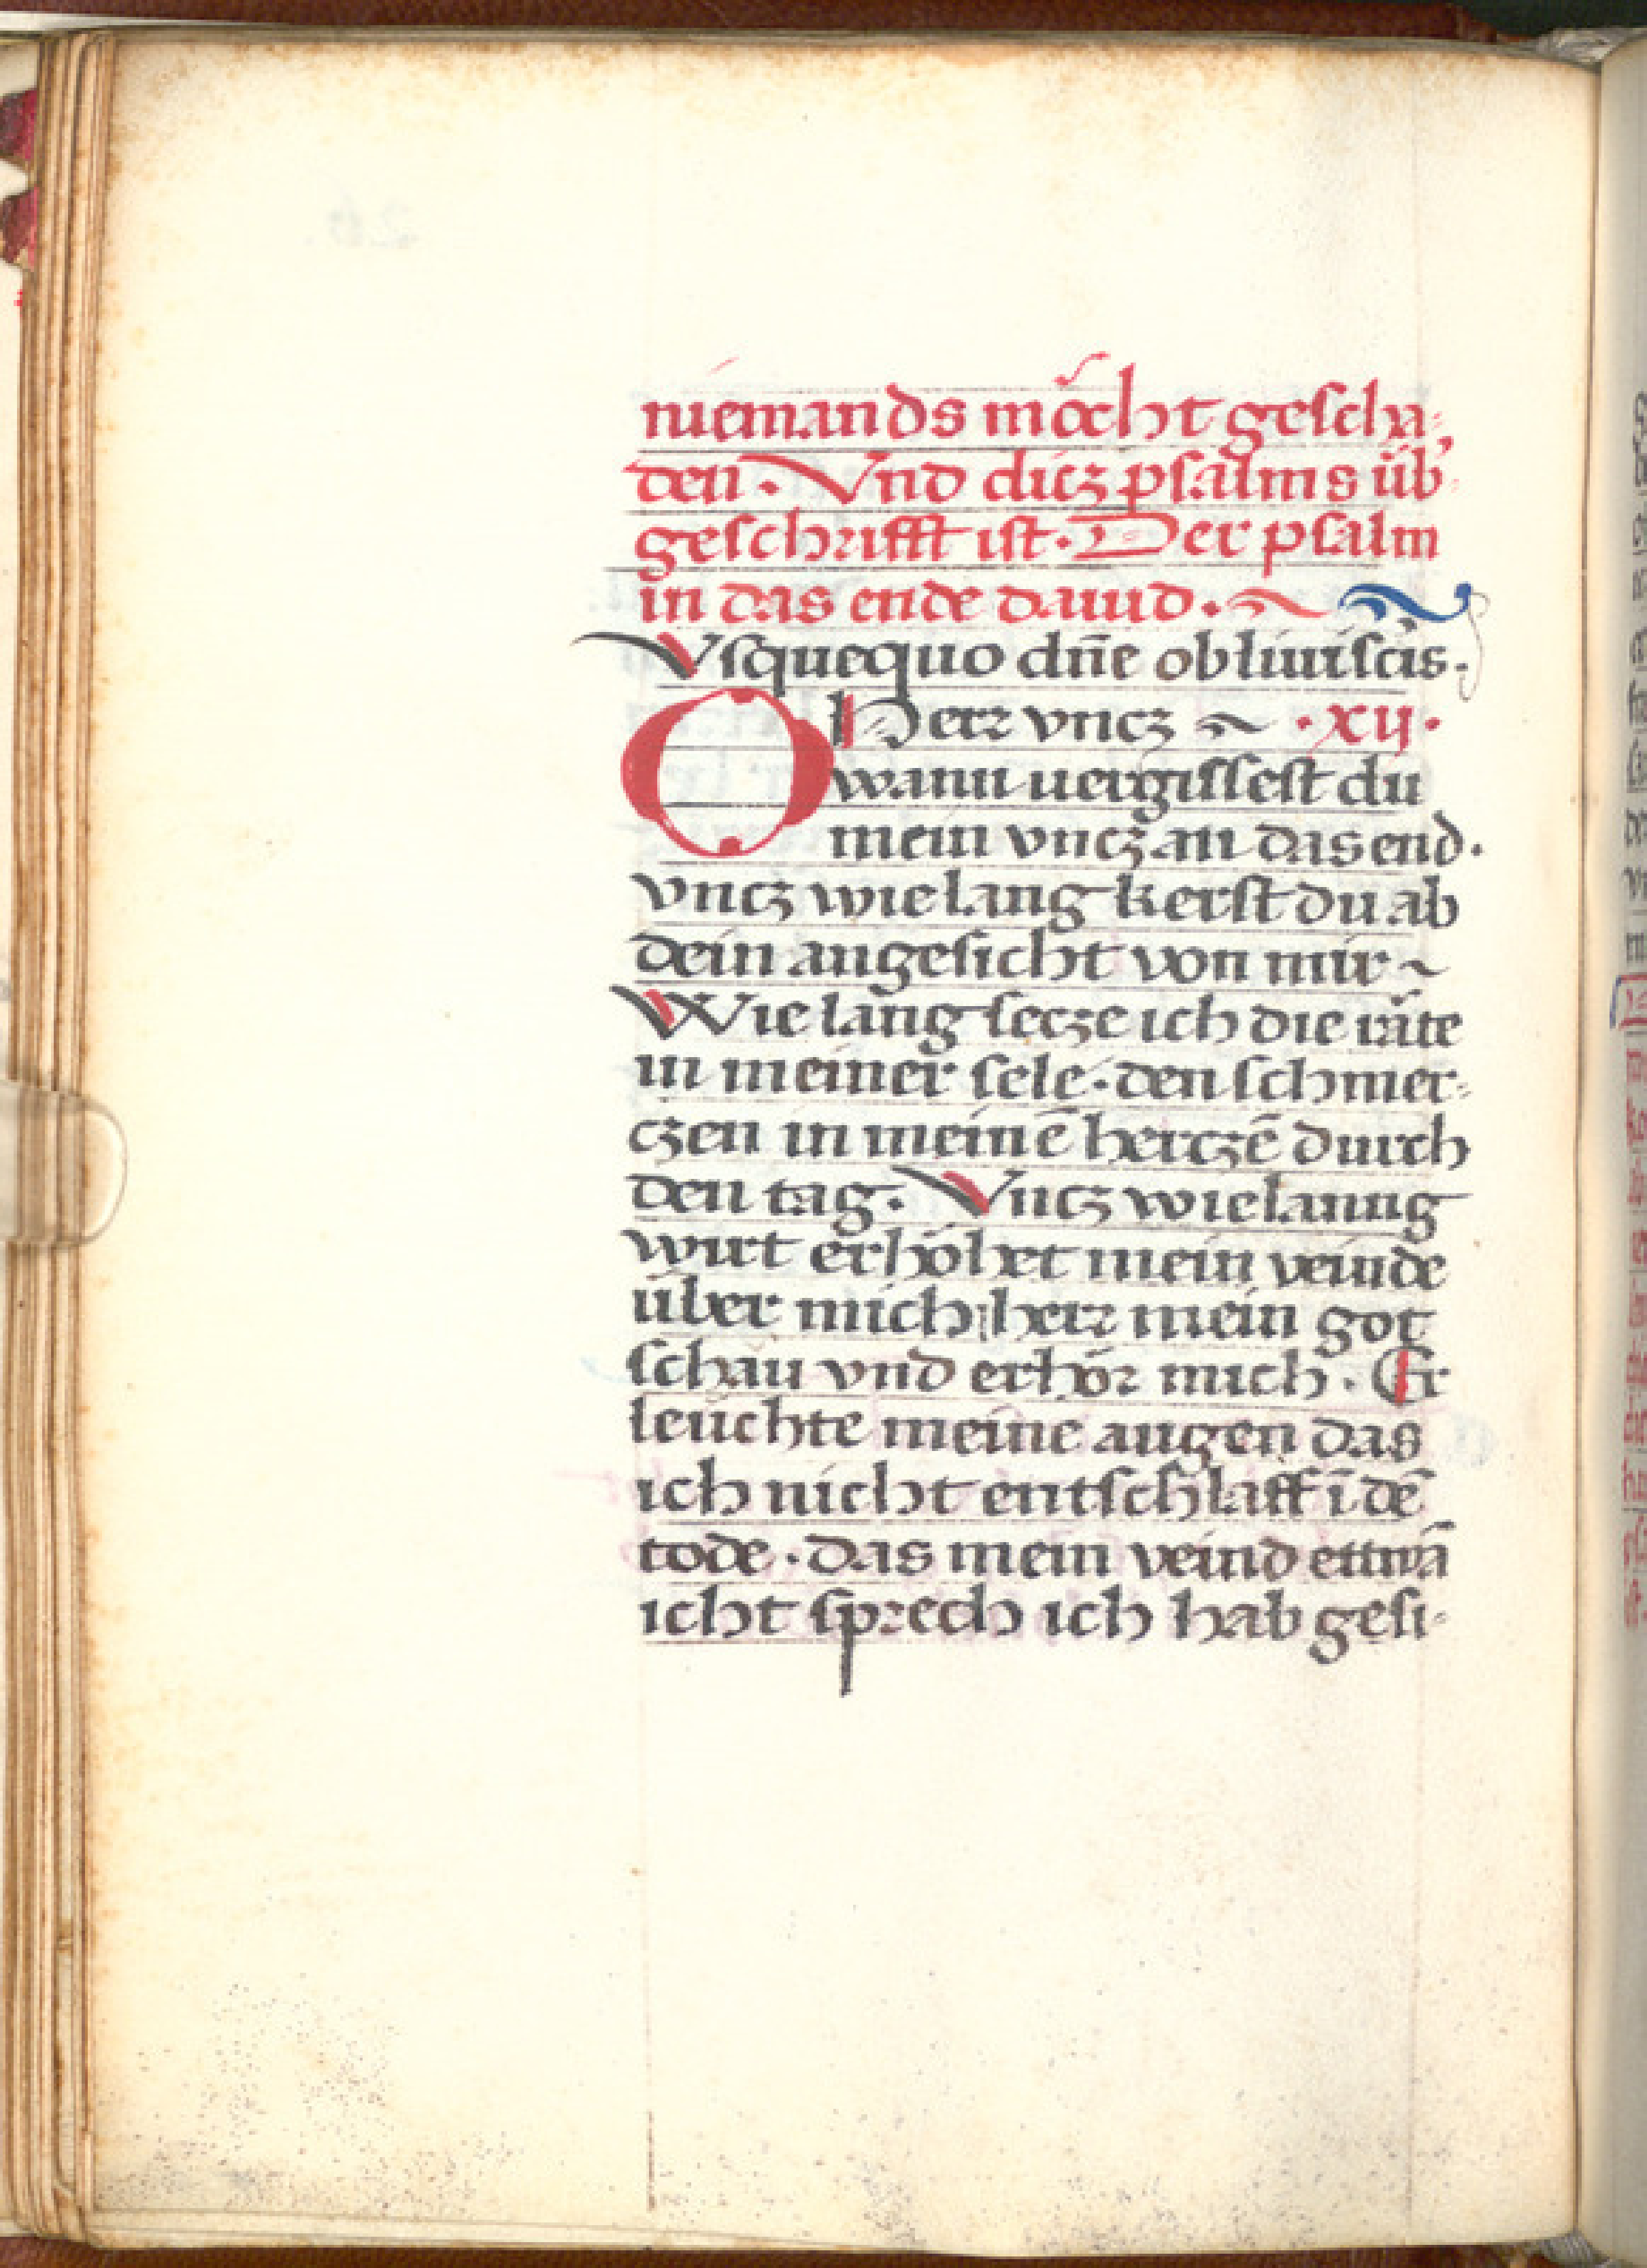 niemands möcht gescha-
den. Vnd dicz psalms üb'
geschrifft ist. Der psalm
in das ende dauid.
Vsquequo dn̄e obliuiscis.
O Herr vncz ·xij·
wann uergissest du
mein vncz an das end.
vncz wie lang kerst du ab
dein angesicht von mir
Wie lang secze ich die räte
in meiner sele. den schmer-
czen in meinē herczē durch
den tag. Vncz wie lanng
wirt erhöhet mein veinde
über mich herr mein got
schau vnd erhör mich. Er
leuchte meine augen das
ich nicht entschlaff ī dē
tode. das mein veind ettwā
icht sprech ich hab gesi-